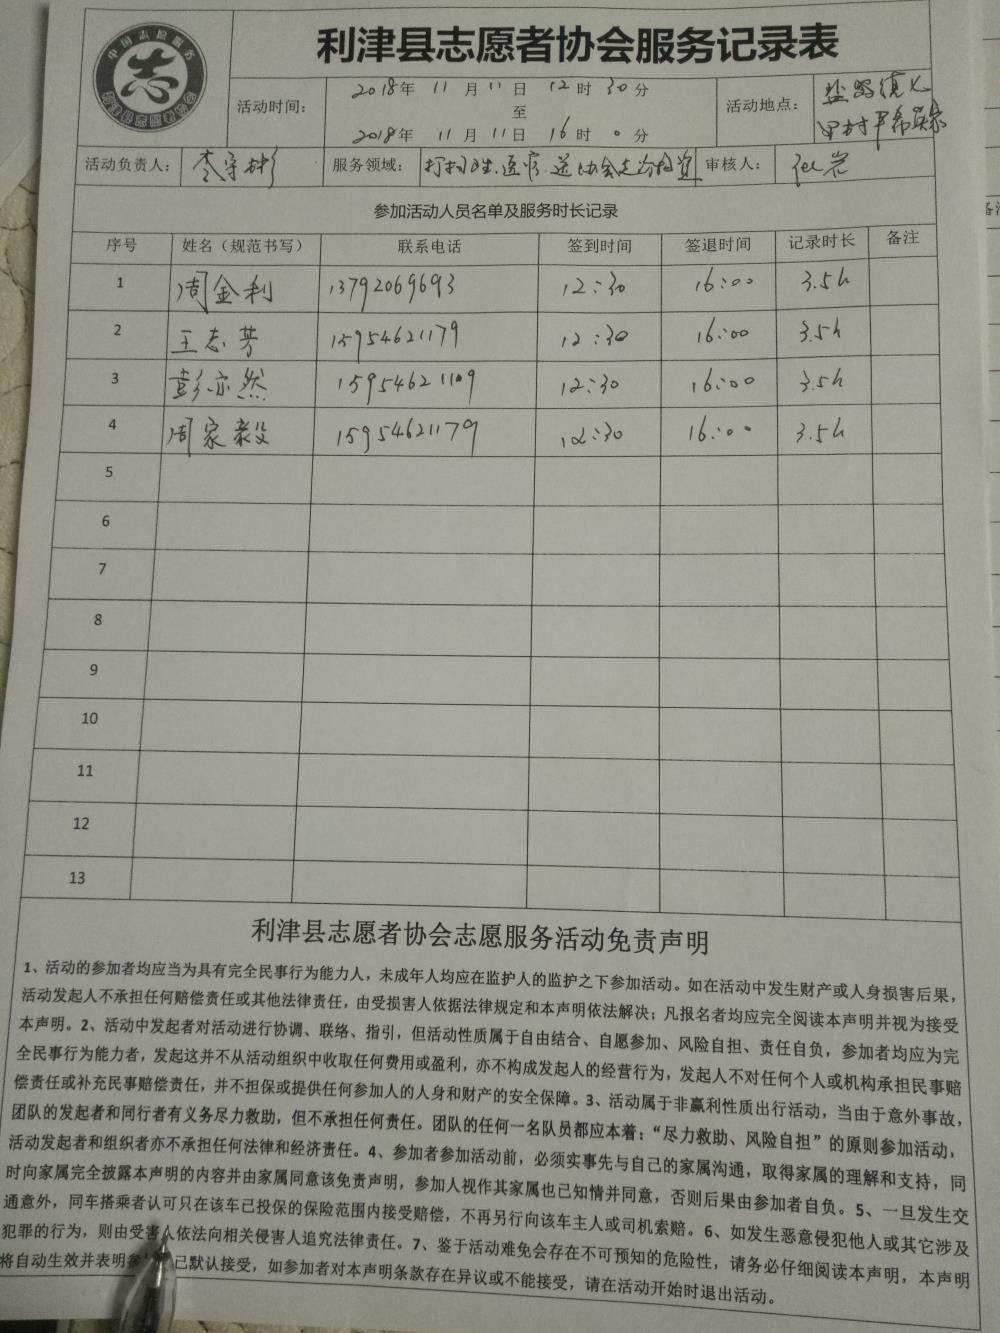 中国志愿服务
志
利津县志愿者协会服务记录表
活动时间: 2018年 11月11日 12时30分
至
2018年 11月11日 16时0分
活动地点: 盐窝镇
村
活动负责人: 李守彬
服务领域: 打扫卫生.送协会
审核人:
参加活动人员名单及服务时长记录
序号 姓名（规范书写） 联系电话 签到时间 签退时间 记录时长 备注
1 周金利 13792069693 12:30 16:00 3.5h
2 王志芳 15954621179 12:30 16:00 3.5h
3 彭亦然 15954621109 12:30 16:00 3.5h
4 周家毅 15954621179 12:30 16:00 3.5h
5
6
7
8
9
10
11
12
13
利津县志愿者协会志愿服务活动免责声明
1、活动的参加者均应当为具有完全民事行为能力人，未成年人均应在监护人的监护之下参加活动。如在活动中发生财产或人身损害后果，
活动发起人不承担任何赔偿责任或其他法律责任，由受损害人依据法律规定和本声明依法解决；凡报名者均应完全阅读本声明并视为接受
本声明。2、活动中发起者对活动进行协调、联络、指引，但活动性质属于自由结合、自愿参加、风险自担、责任自负，参加者均应为完
全民事行为能力者，发起这并不从活动组织中收取任何费用或盈利，亦不构成发起人的经营行为，发起人不对任何个人或机构承担民事赔
偿责任或补充民事赔偿责任，并不担保或提供任何参加人的人身和财产的安全保障。3、活动属于非赢利性质出行活动，当由于意外事故，
团队的发起者和同行者有义务尽力救助，但不承担任何责任。团队的任何一名队员都应本着：“尽力救助、风险自担”的原则参加活动，
活动发起者和组织者亦不承担任何法律和经济责任。4、参加者参加活动前，必须实事先与自己的家属沟通，取得家属的理解和支持，同
时向家属完全披露本声明的内容并由家属同意该免责声明，参加人视作其家属也已知情并同意，否则后果由参加者自负。5、一旦发生交
通意外，同车搭乘者认可只在该车已投保的保险范围内接受赔偿，不再另行向该车主人或司机索赔。6、如发生恶意侵犯他人或其它涉及
犯罪的行为，则由受害人依法向相关侵害人追究法律责任。7、鉴于活动难免会存在不可预知的危险性，请务必仔细阅读本声明，本声明
将自动生效并表明参 已默认接受，如参加者对本声明条款存在异议或不能接受，请在活动开始时退出活动。